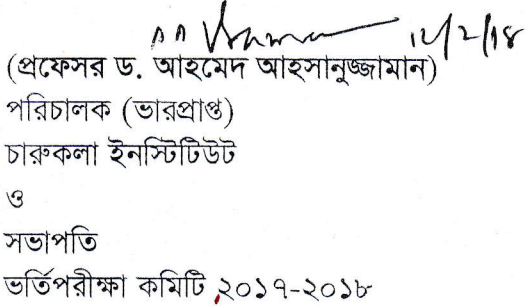 12/2/18
(প্রফেসর ড. আহমেদ আহসানুজ্জামান)
পরিচালক (ভারপ্রাপ্ত)
চারুকলা ইনস্টিটিউট
ও
সভাপতি
ভর্তিপরীক্ষা কমিটি ২০১৭-২০১৮